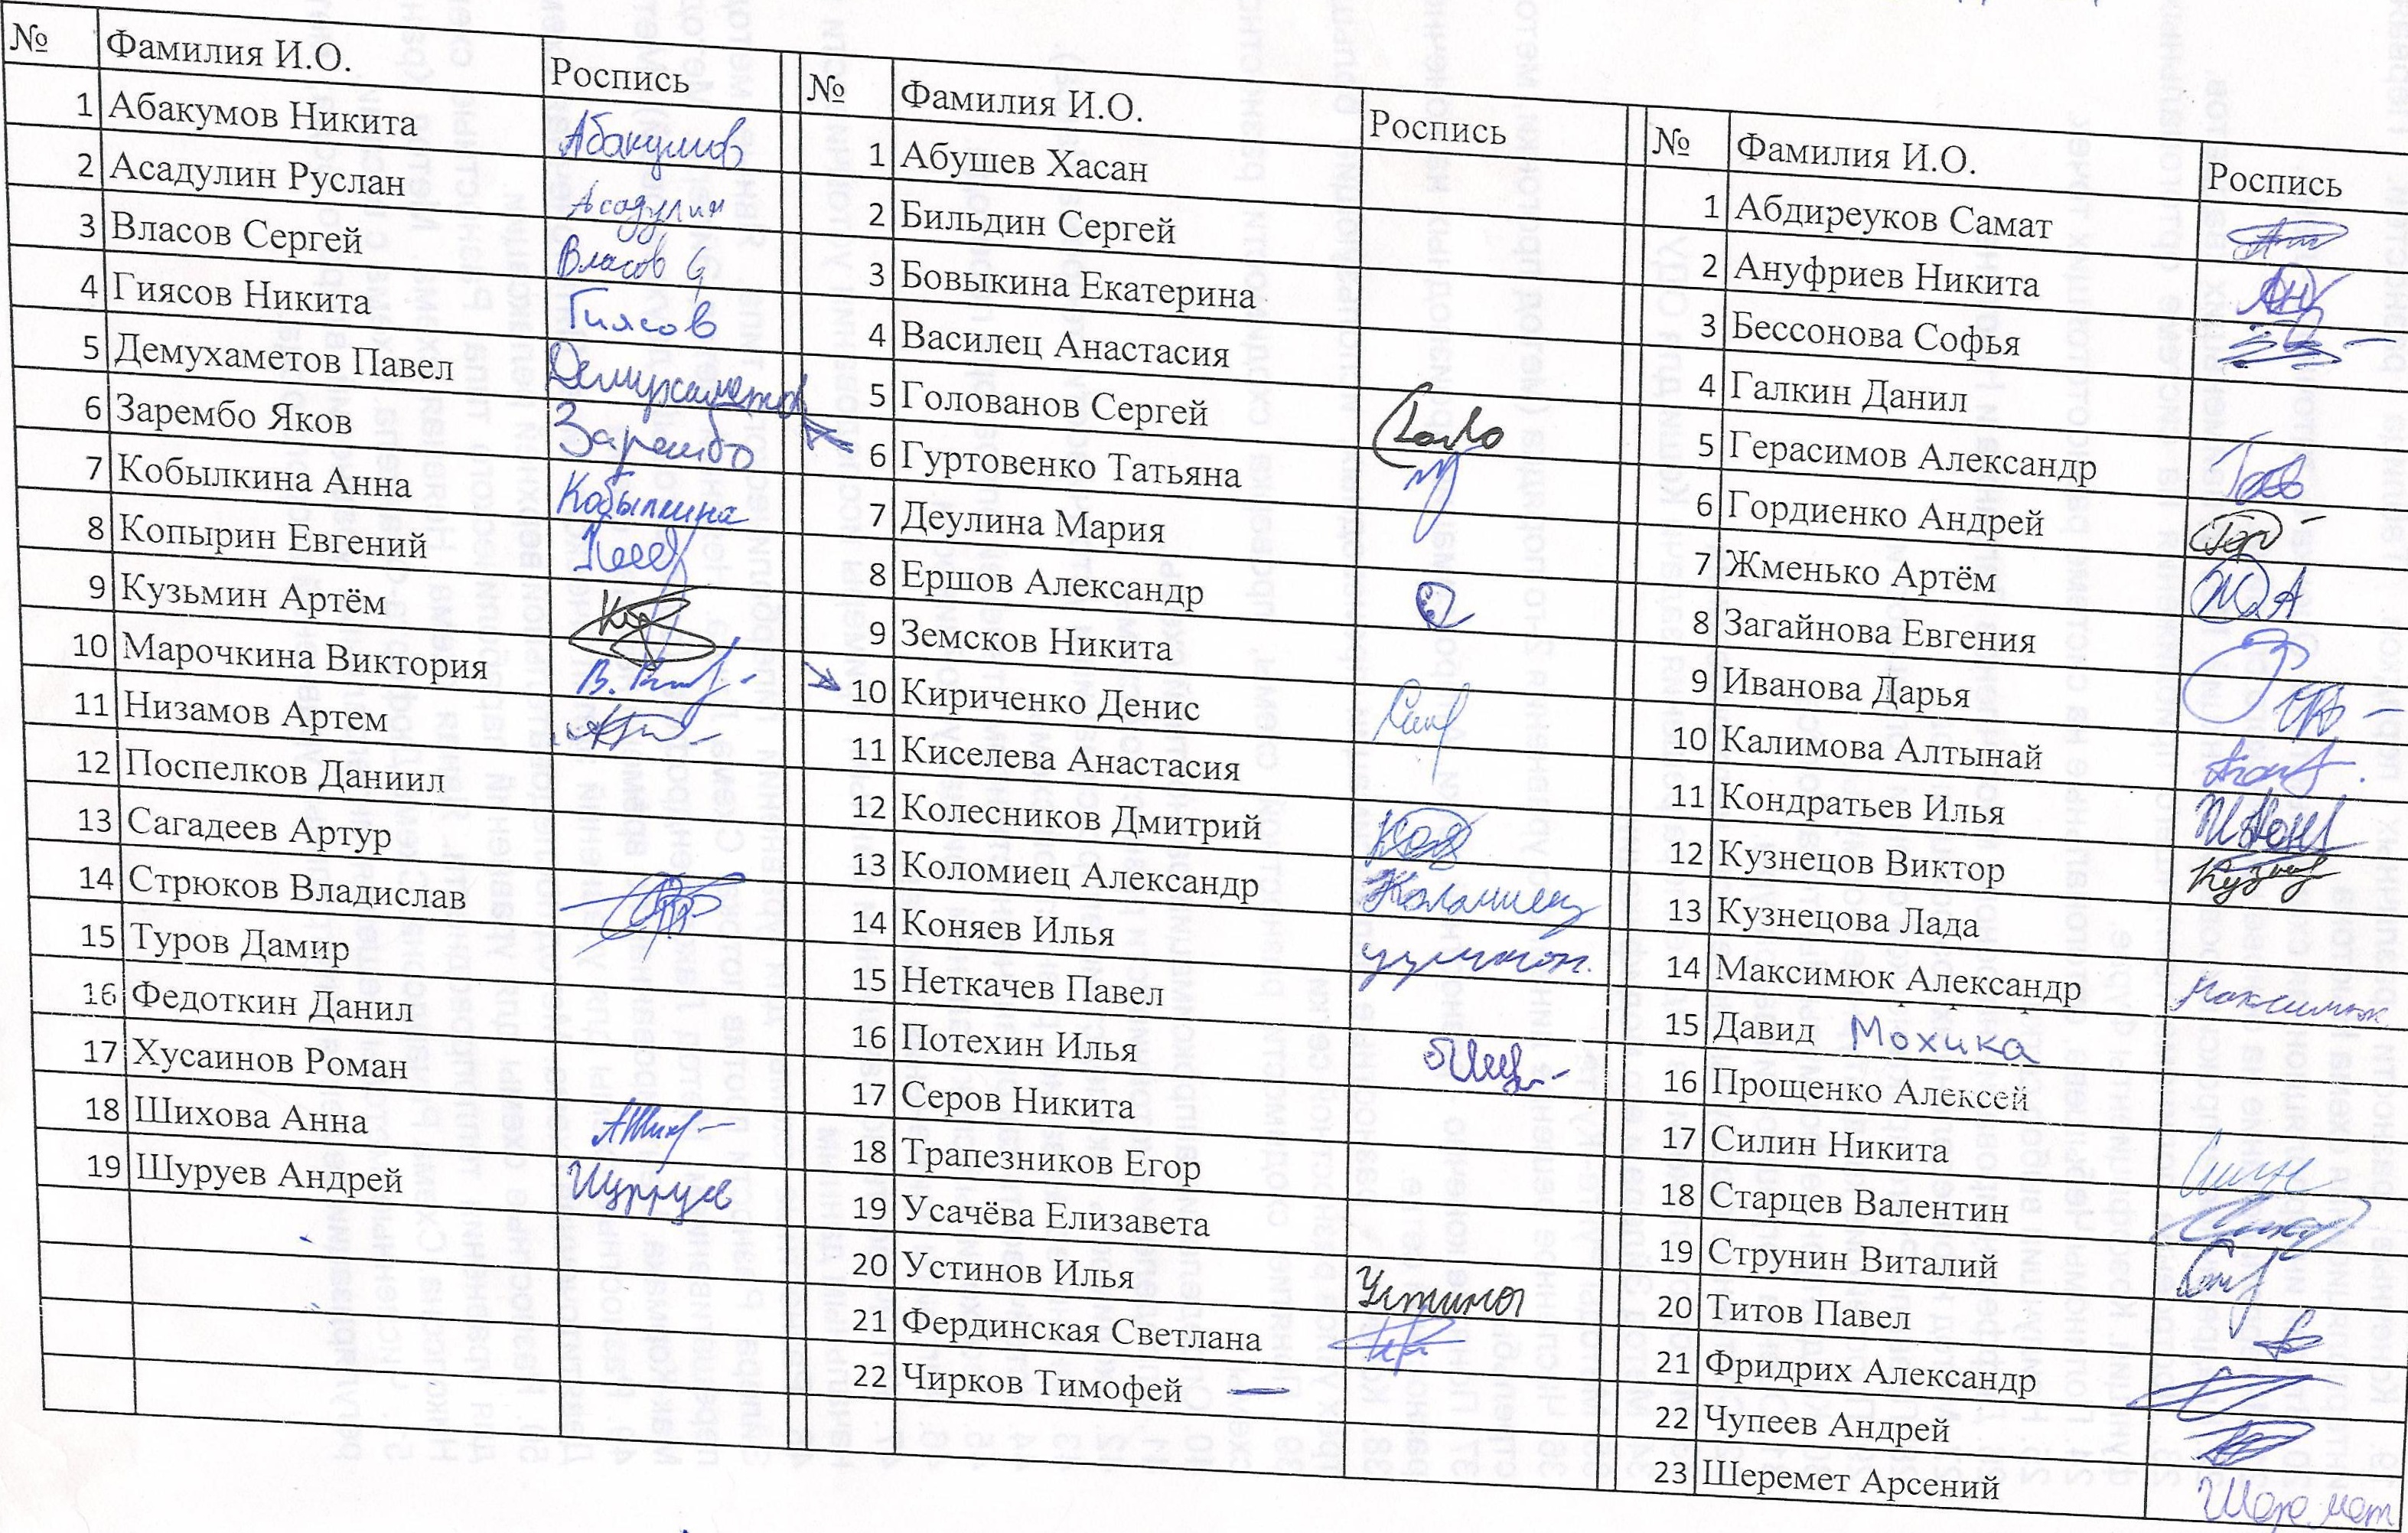 № Фамилия И.О. Роспись
1 Абакумов Никита Абакумов
2 Асадулин Руслан Асадулин
3 Власов Сергей Власов С
4 Гиясов Никита Гиясов
5 Демухаметов Павел Демухаметов
6 Зарембо Яков Зарембо
7 Кобылкина Анна Кобылкина
8 Копырин Евгений
9 Кузьмин Артём
10 Марочкина Виктория
11 Низамов Артем
12 Поспелков Даниил
13 Сагадеев Артур
14 Стрюков Владислав
15 Туров Дамир
16 Федоткин Данил
17 Хусаинов Роман
18 Шихова Анна
19 Шуруев Андрей Шуруев
№ Фамилия И.О. Роспись
1 Абушев Хасан
2 Бильдин Сергей
3 Бовыкина Екатерина
4 Василец Анастасия
5 Голованов Сергей
6 Гуртовенко Татьяна
7 Деулина Мария
8 Ершов Александр
9 Земсков Никита
10 Кириченко Денис
11 Киселева Анастасия
12 Колесников Дмитрий
13 Коломиец Александр Коломиец
14 Коняев Илья
15 Неткачев Павел
16 Потехин Илья
17 Серов Никита
18 Трапезников Егор
19 Усачёва Елизавета
20 Устинов Илья Устинов
21 Фердинская Светлана
22 Чирков Тимофей —
№ Фамилия И.О. Роспись
1 Абдиреуков Самат
2 Ануфриев Никита
3 Бессонова Софья
4 Галкин Данил
5 Герасимов Александр
6 Гордиенко Андрей
7 Жменько Артём
8 Загайнова Евгения
9 Иванова Дарья
10 Калимова Алтынай
11 Кондратьев Илья
12 Кузнецов Виктор
13 Кузнецова Лада
14 Максимюк Александр Максимюк
15 Давид Мохика
16 Прощенко Алексей
17 Силин Никита
18 Старцев Валентин
19 Струнин Виталий
20 Титов Павел
21 Фридрих Александр
22 Чупеев Андрей
23 Шеремет Арсений Шеремет